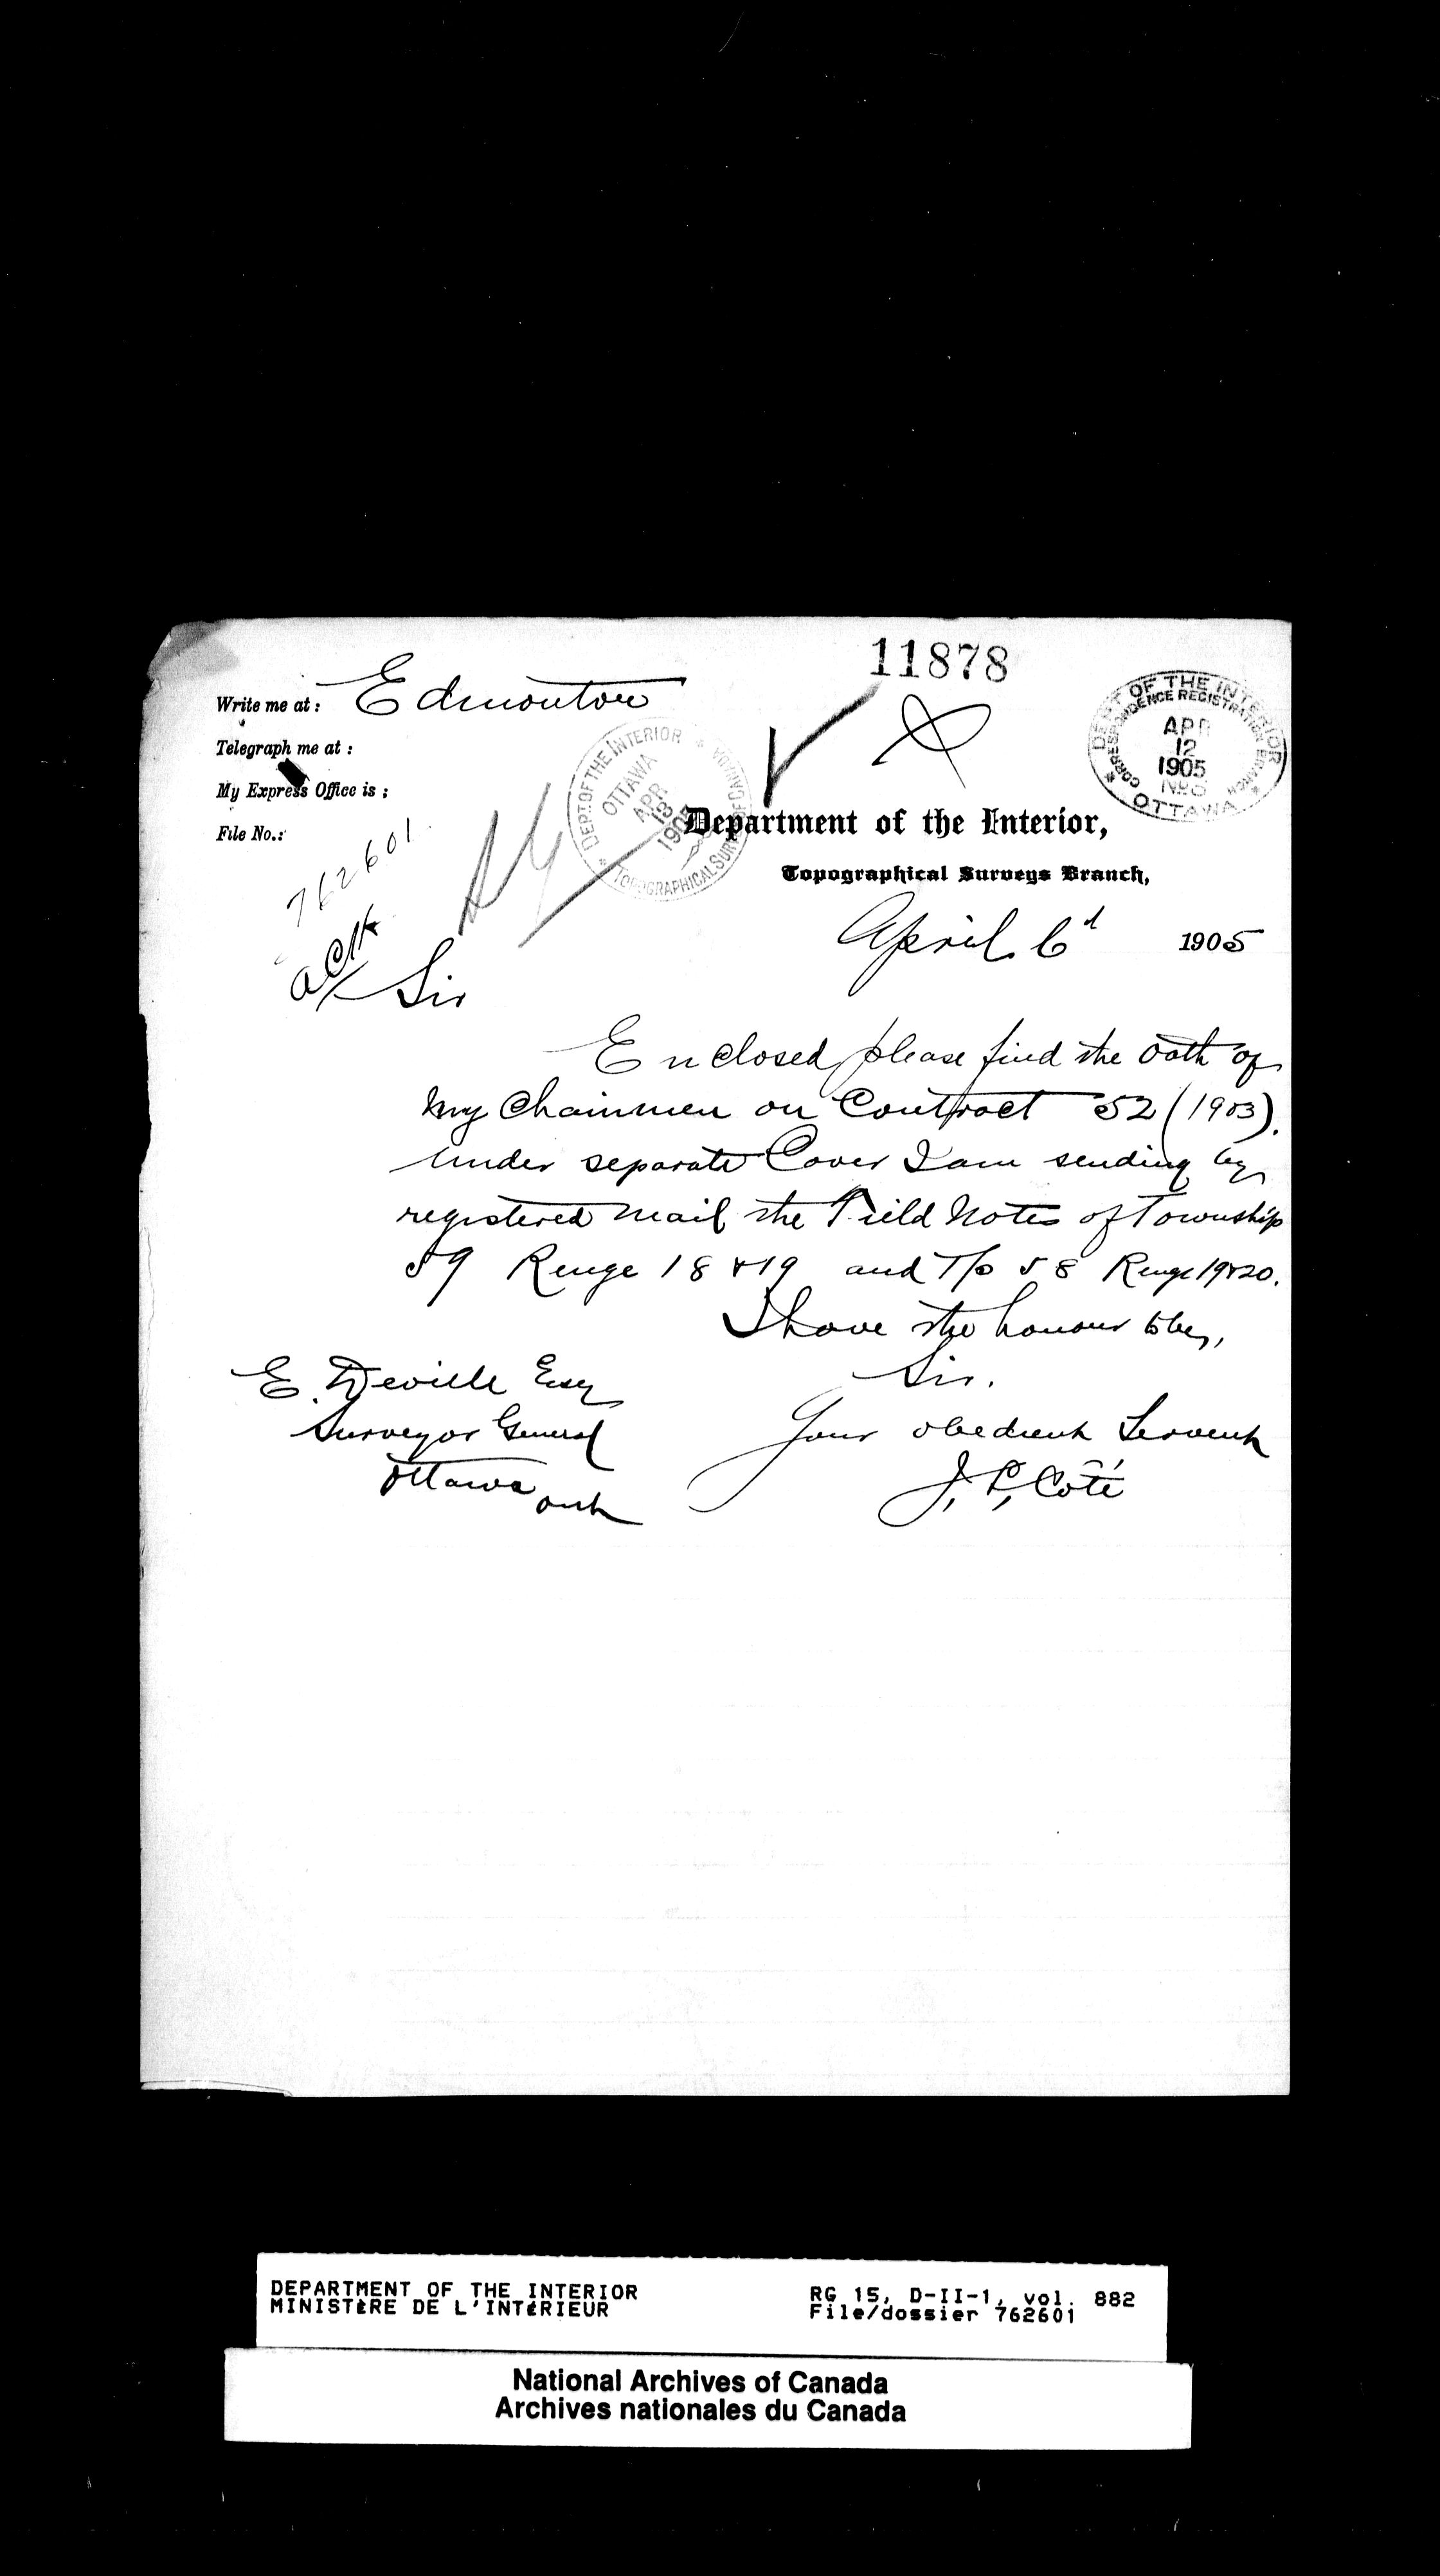 11878
Write me at : Edmonton
Telegraph me at :
My Express Office is ;
File No.:
762601
ack
DEPT. OF THE INTERIOR
OTTAWA
APR
13
1905
TOPOGRAPHICAL SURVEYS OF CANADA
DEPT OF THE INTERIOR
CORRESPONDENCE REGISTRATION BRANCH
APR
12
1905
OTTAWA
Department of the Interior,
Topographical Surveys Branch,
April 6th 1905
Sir
Enclosed please find the Oath of
my Chainmen on Contract 52 (1903).
Under separate Cover I am sending by
registered mail the Field Notes of Township
59 Range 18 & 19 and T/p 58 Range 19&20.
I have the honour to be,
Sir.
Your obedient Servent
J. L. Coté
E. Deville Esq
Surveyor General
Ottawa Ont
DEPARTMENT OF THE INTERIOR
MINISTÈRE DE L'INTÉRIEUR
RG 15, D-II-1, vol. 882
File/dossier 762601
National Archives of Canada
Archives nationales du Canada